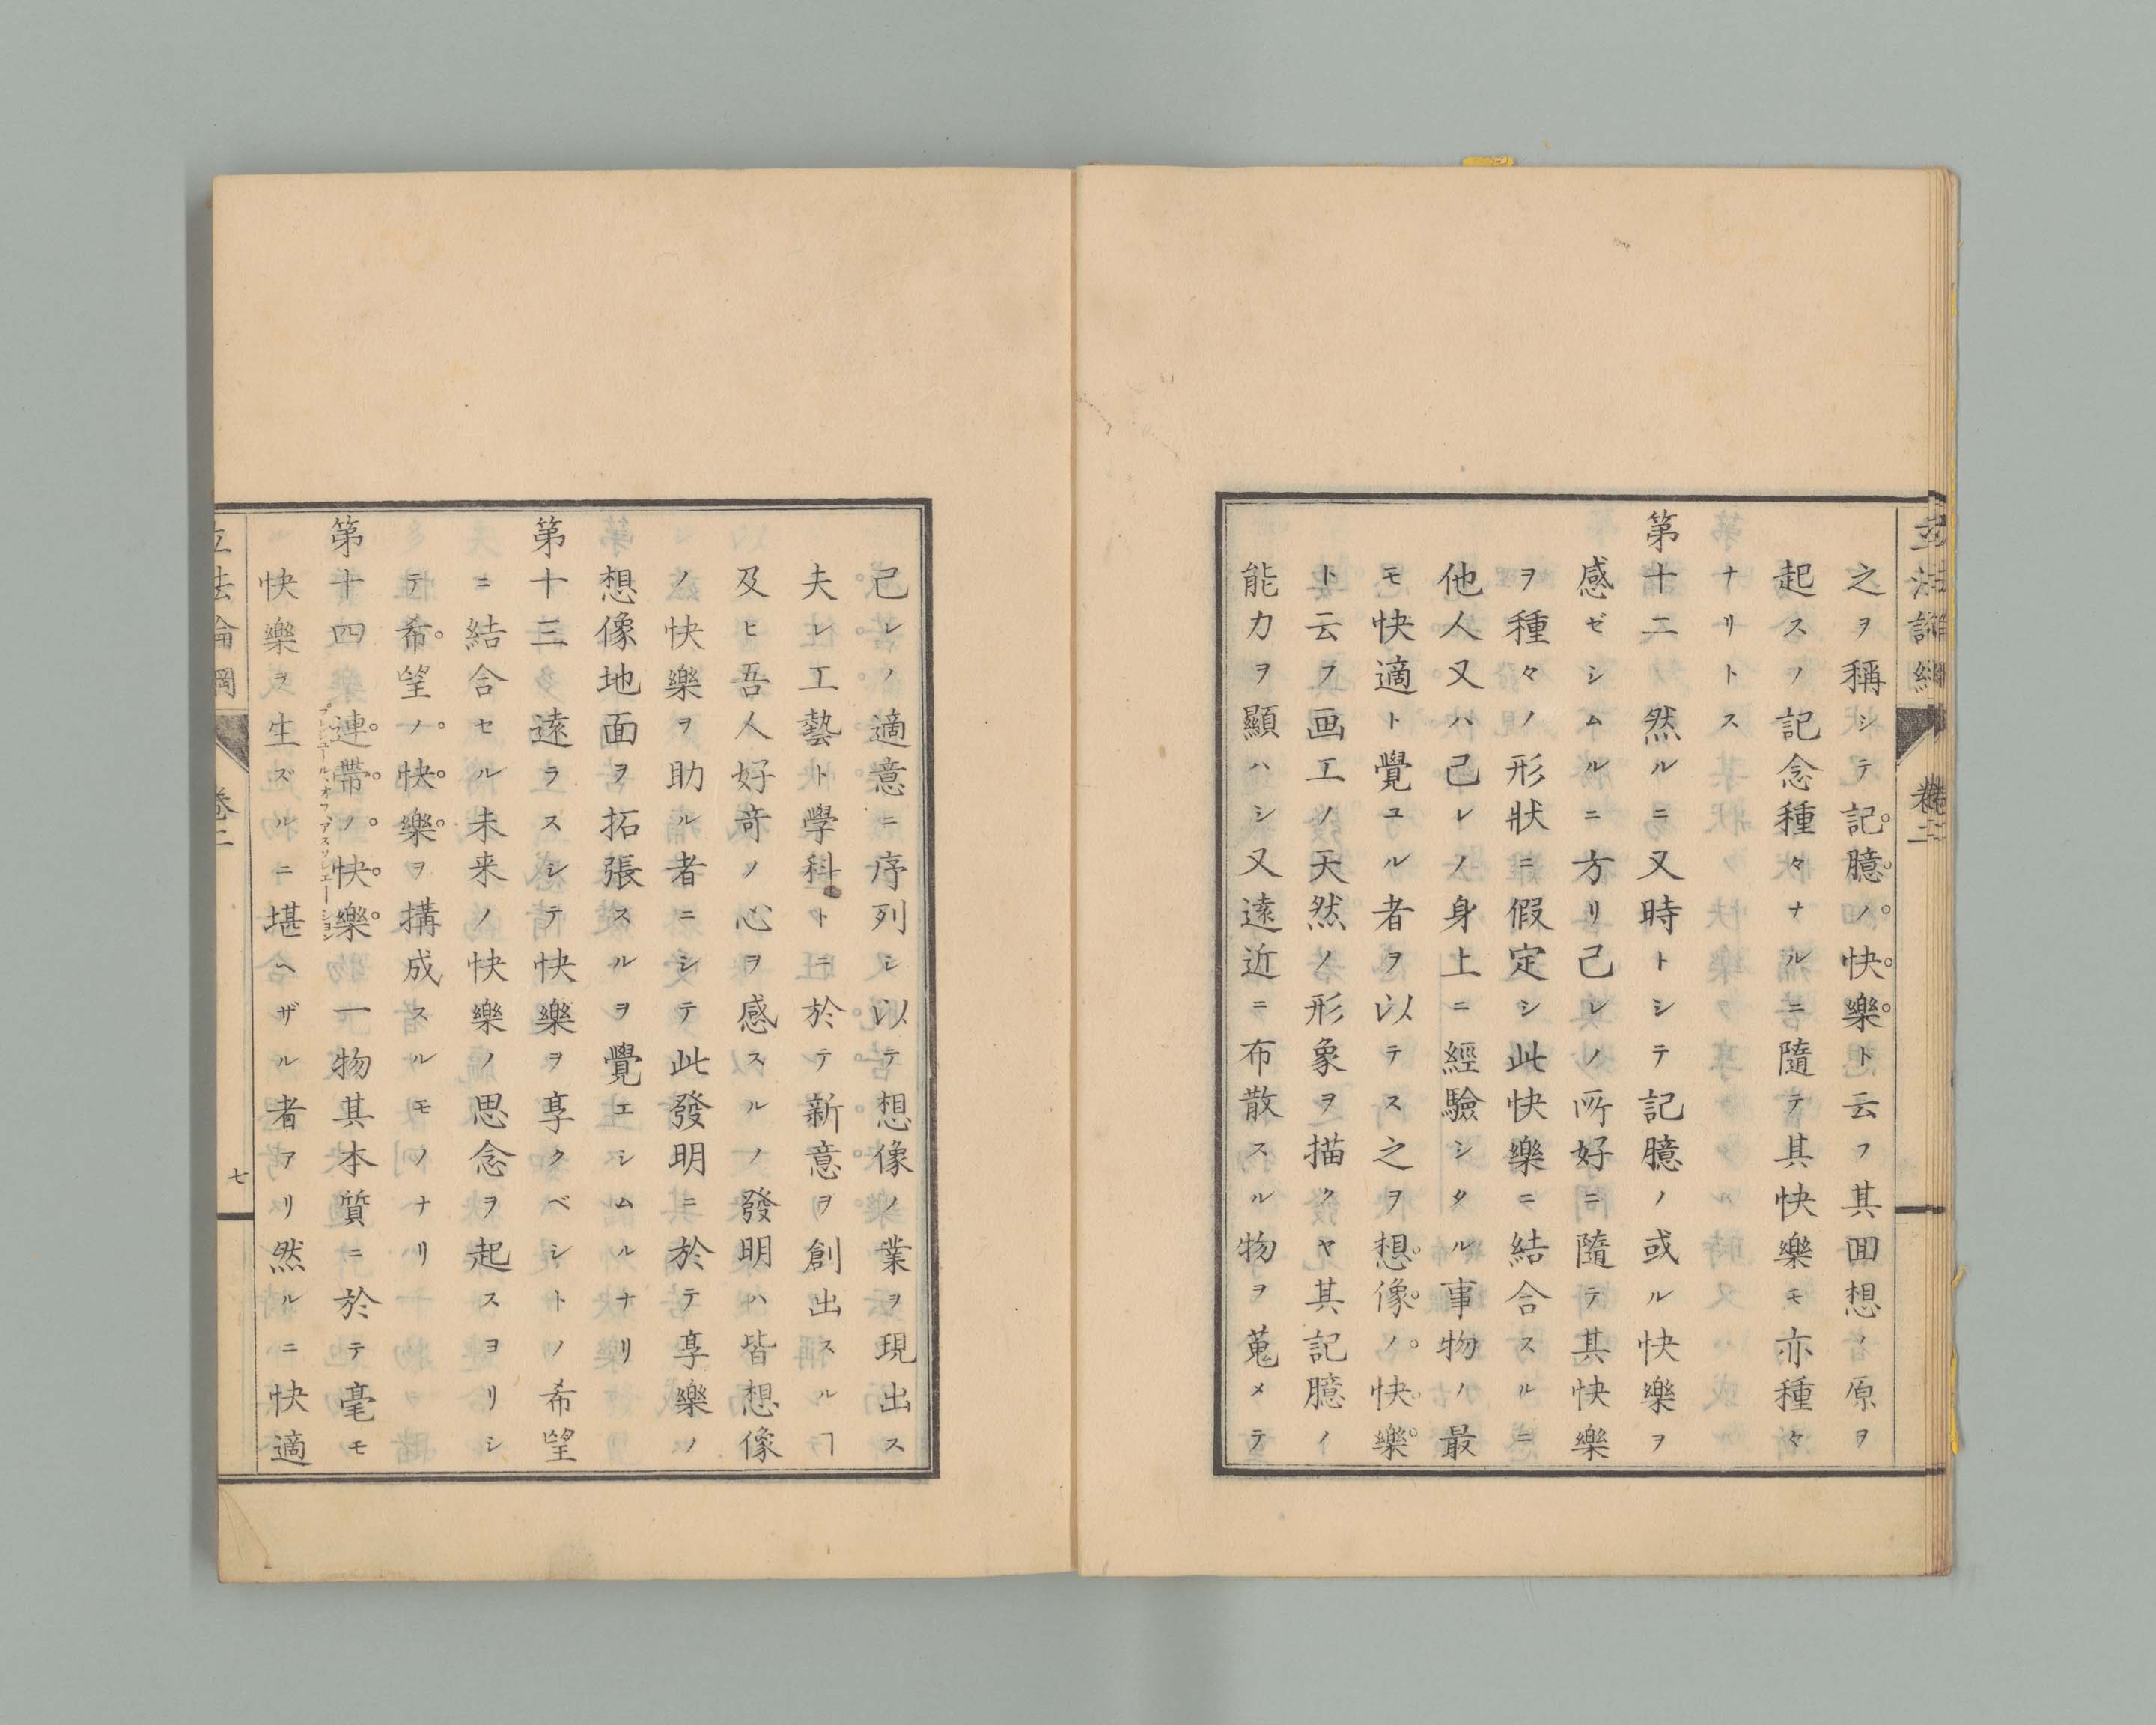 之ヲ稱シテ記臆ノ快樂ト云フ其囬想ノ原ヲ
起スノ記念種々ナルニ隨テ其快樂モ亦種々
ナリトス
第十二然ルニ又時トシテ記臆ノ或ル快樂ヲ
感ゼシムルニ方リ己レノ所好ニ隨テ其快樂
ヲ種々ノ形狀ニ假定シ此快樂ニ結合スルニ
他人又ハ己レノ身上ニ經驗シタル事物ノ最
モ快適ト覺ユル者ヲ以テス之ヲ想像ノ快樂
ト云フ画工ノ天然ノ形象ヲ描クヤ其記臆ノ
能力ヲ顯ハシ又遠近ニ布散スル物ヲ蒐メテ
己レノ適意ニ序列シ以テ想像ノ業ヲ現出ス
夫レ工藝ト學科トニ於テ新意ヲ創出スルヿ
及ヒ吾人好奇ノ心ヲ感スルノ發明ハ皆想像
ノ快樂ヲ助ル者ニシテ此發明ニ於テ享樂ノ
想像地面ヲ拓張スルヲ覺エシムルナリ
第十三遠ラスシテ快樂ヲ享クベシトノ希望
ニ結合セル未来ノ快樂ノ思念ヲ起スヨリシ
テ希望ノ快樂ヲ搆成スルモノナリ
第十四連帶ノ快樂一物其本質ニ於テ毫モ
プレジュール、オフ、アスソシエーション
快樂ヲ生ズルニ堪ヘザル者アリ然ルニ快適
立法論綱 卷二 七